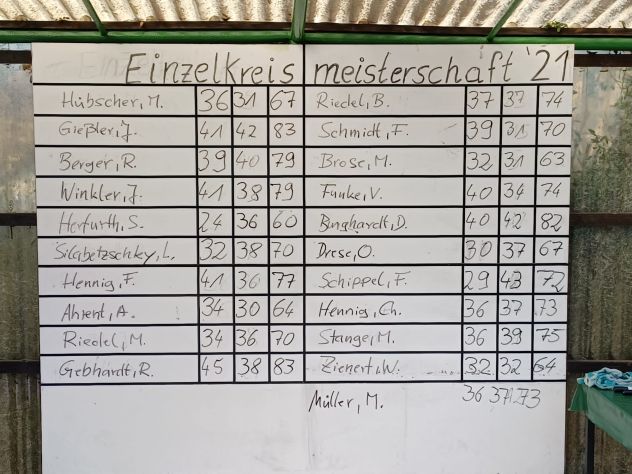 Einzelkreis meisterschaft '21
Hübscher, M. 36 31 67 Riedel, B. 37 37 74
Gießler, J. 41 42 83 Schmidt, F. 39 31 70
Berger, R. 39 40 79 Brose, M. 32 31 63
Winkler, J. 41 38 79 Funke, V. 40 34 74
Harfurth, S. 24 36 60 Burghardt, D. 40 42 82
L. 32 38 70 Drese, O. 30 37 67
Hennig, F. 41 36 77 Schippel, F. 29 43 72
Ahrent, A. 34 30 64 Hennig, Ch. 36 37 73
Riedel, M. 34 36 70 Stange, M. 36 39 75
Gebhardt, R. 45 38 83 Zienert, W. 32 32 64
Müller, M. 36 37 73